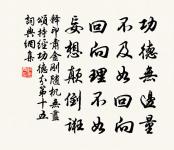 功德無邊量
不及如回向
回向理不如
妄想顛倒誑
釋印肅金剛隨机無盡
頌持經功德分第十五
詞典網集